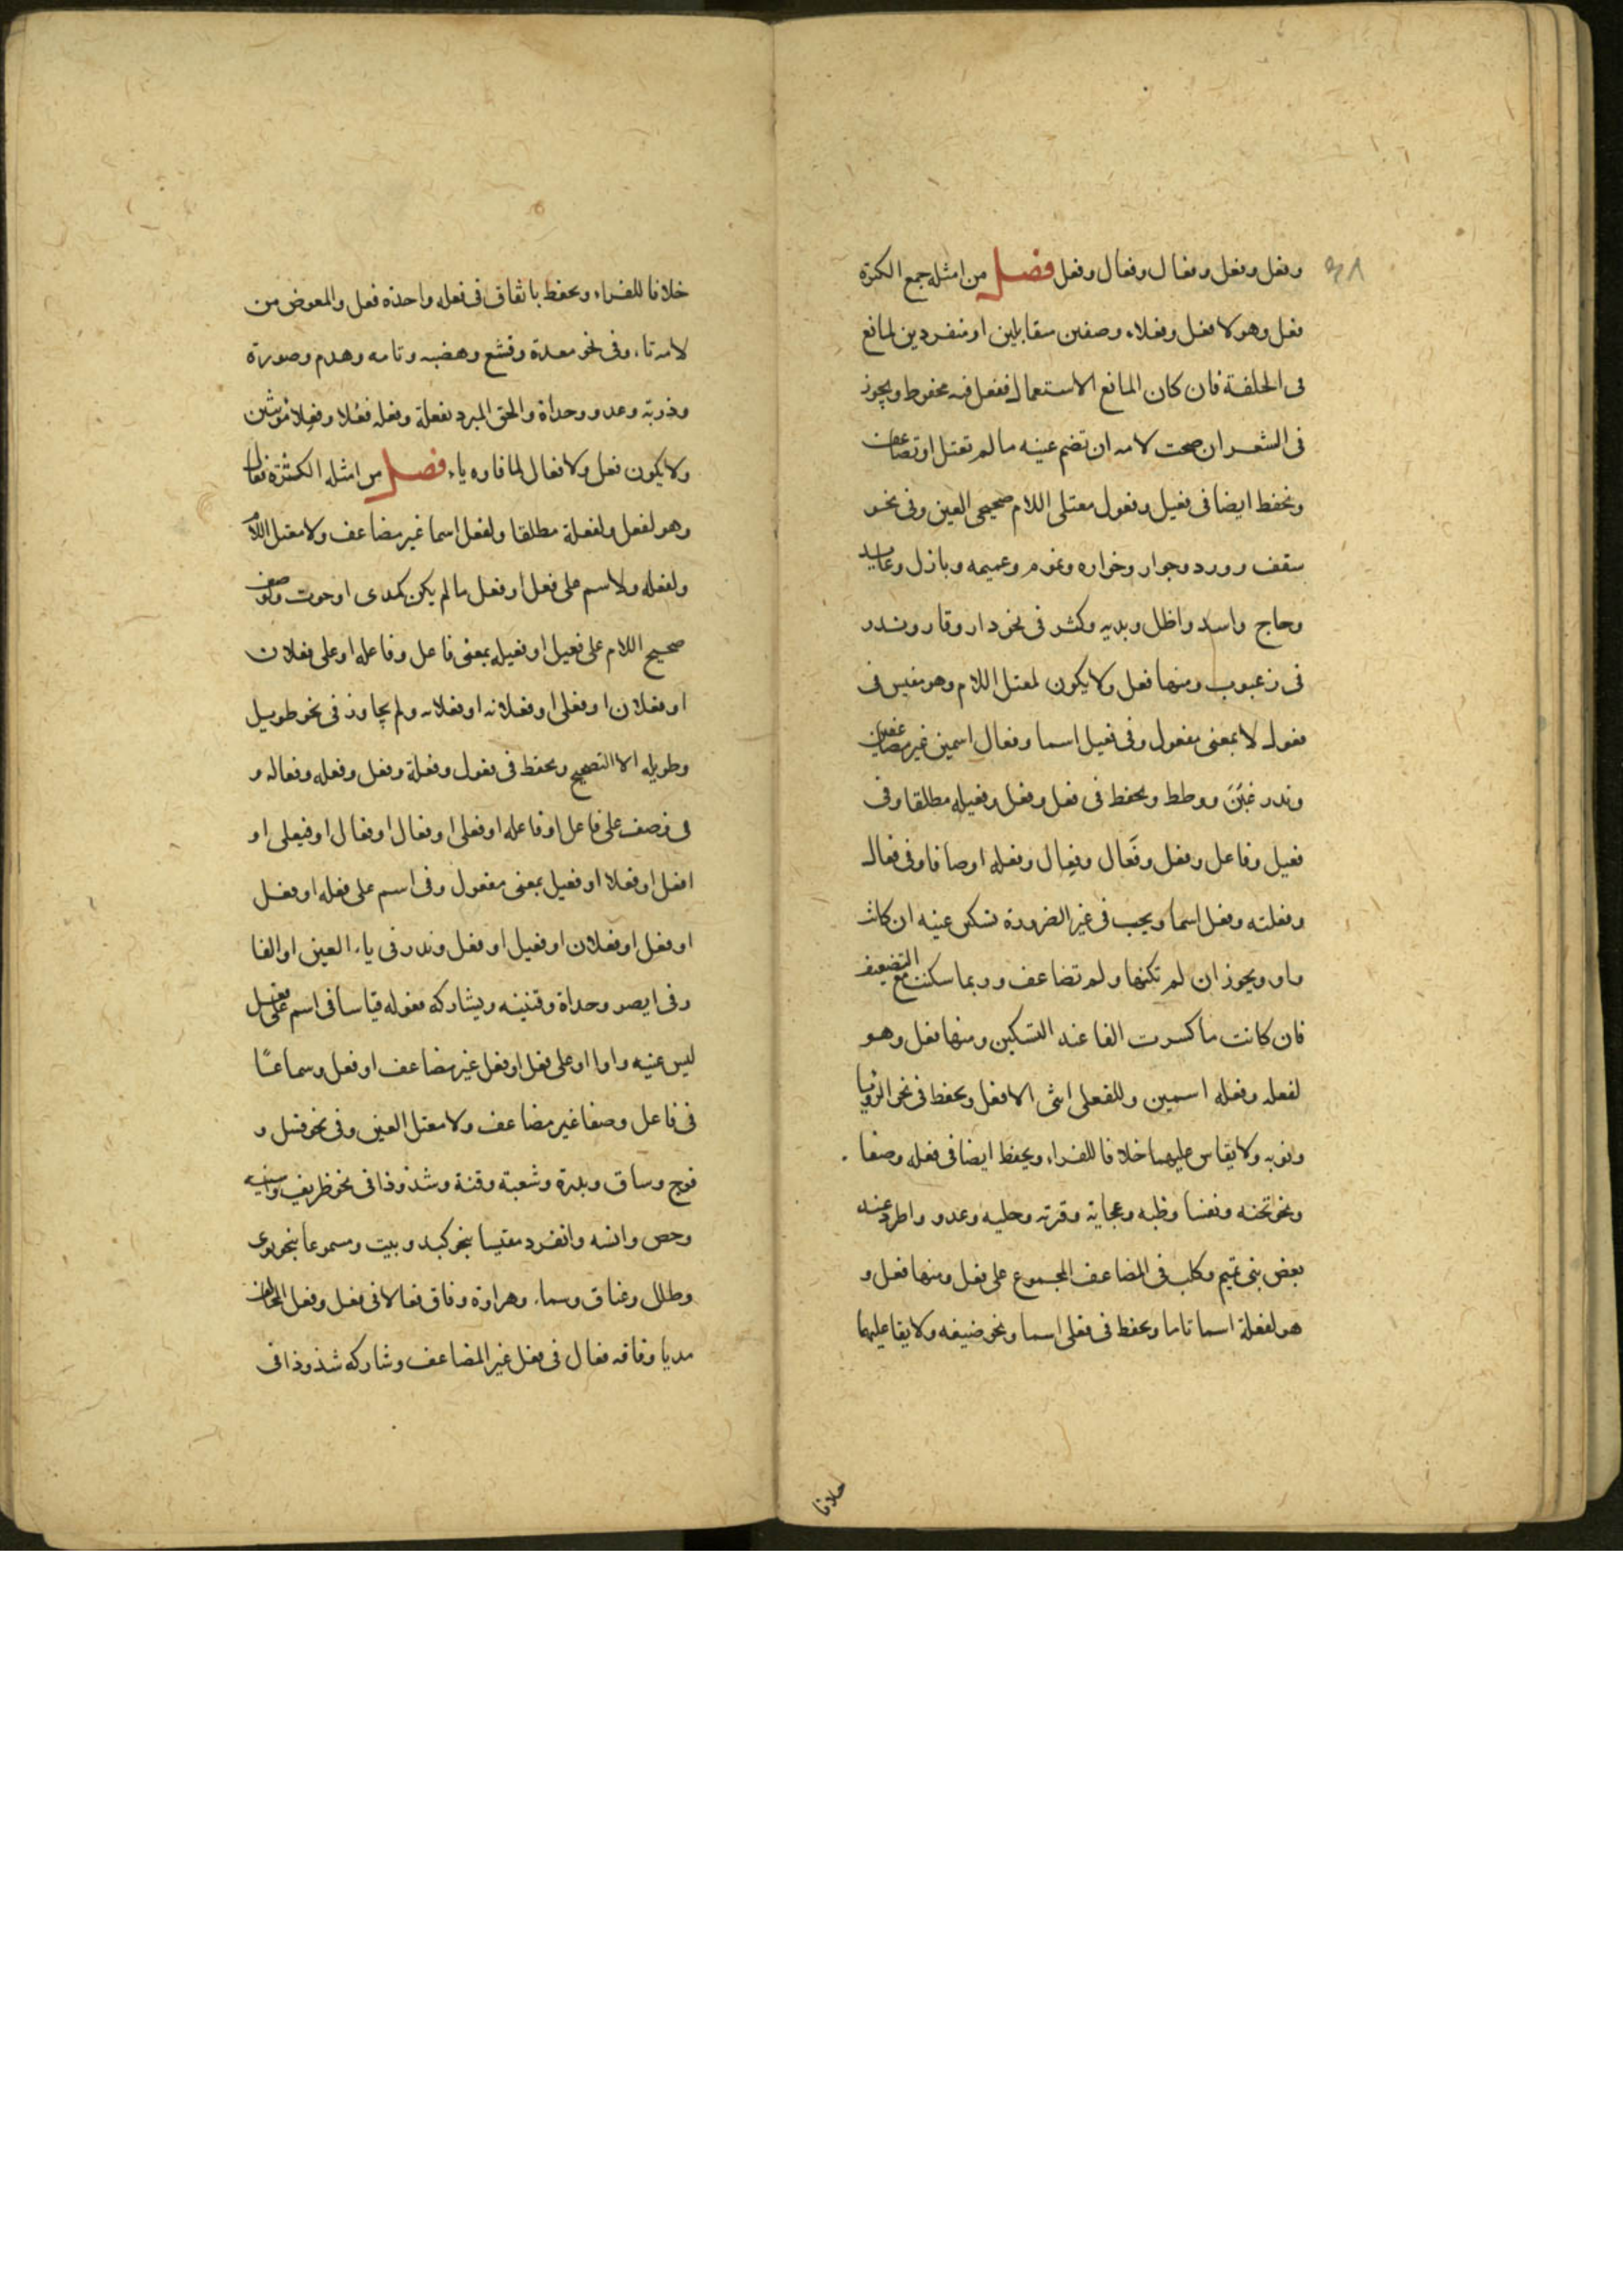 وفعل وفعل وفعال وفعال وفعل فصل من امثله جمع الكثرة
فعل وهو لافعل وفعلاء وصفين متقابلين او منفردين لمانع
فى الخلقة فان كان المانع الاستعمال ففعل فيه محفوظ ويجوز
فى الشعر ان صحت لامه ان تضم عينه ما لم تعتل او تضاعف
ويحفظ ايضا فى فعيل وفعول معتلى اللام صحيحى العين وفى نحو
سقف وورد وجوار وخواره ونموم وعميمه وبازل وعايد
وحاج واسد واظل وبديه وكثر فى نحو دار وقار وندر
فى زعبوب ومنها فعل ولا يكون لمعتل اللام وهو مقيس فى
فعول لا بمعنى مفعول وفى فعيل اسما وفعال اسمين غير مضاعفين
وندر عنن ووطط ويحفظ فى فعل وفعل وفعيله مطلقا وفى
فعيل وفاعل وفعل وفعال وفعال وفعله اوصافا وفى فعال
وفعلته وفعل اسما ويجب فى غير الضرورة تسكين عينه ان كانت
واو ويجوز ان لم تكنها ولم تضاعف وربما سكنت مع التضعيف
فان كانت ما كسرت الفا عند التسكين ومنها فعل وهو
لفعله وفعله اسمين وللفعلى انثى الافعل ويحفظ فى نحو الرؤيا
ونوبه ولا يقاس عليهما خلافا للفراء ويحفظ ايضا فى فعله وصفا
ونحو تخمه ونفسا وظبه وعجاية وقرية وحليه وعدو واطرد عند
بعض بنى تميم وكلب فى المضاعف المجموع على فعل ومنها فعل و
هو لفعلة اسما تاما ويحفظ فى فعلى اسما ونحو ضيعه ولا يقا عليهما
خلافا
خلافا للفراء ويحفظ باتفاق فى فعله واحده فعل والمعوض من
لامه تاء وفى نحو معدة وقشع وهضبه وقامه وهدم وصورة
وذربة وعدو وحدأة والحق المبرد بفعلة وفعله فعلا وفعلا مؤنثين
ولا يكون فعل ولا فعال لما فاوه ياء فصل من امثله الكثرة فعال
وهو لفعل ولفعلة مطلقا ولفعل اسما غير مضاعف ولا معتل اللام
ولفعله ولاسم على فعل او فعل ما لم يكن كمدى او حوت ولوصف
صحيح اللام على فعيل او فعيله بمعنى فاعل وفاعله او على فعلان
او فعلان او فعلى او فعلانه او فعلانه ولم يجاوز فى نحو طويل
وطويله الا التصحيح ويحفظ فى فعول وفعلة وفعل وفعله وفعاله و
فى وصف على فاعل او فاعله او فعلى او فعال او فعال او فيعلى او
افعل او فعلا او فعيل بمعنى مفعول وفى اسم على فعله او فعل
او فعل او فعلان او فعيل او فعل وندر فى ياء العين او الفا
وفى ايصر وحداة وقنينه ويشاركه فعوله قياسا فى اسم على فعل
ليس عينه واوا او على فعل او فعل غير مضاعف او فعل وسماعًا
فى فاعل وصفا غير مضاعف ولا معتل العين وفى نحو فسل و
فوج وساق وبدرة وشعبة وقنة وشذوذا فى نحو ظريف
وحص وانسه وانفرد مقيسا بنحو كبد وبيت ومسموعا بنحو نوى
وطلل وعناق وسماء وهراوة وفاق فعالا فى فعل وفعل
مديا وفاقه فعال فى فعل غير المضاعف وشاركه شذوذا فى